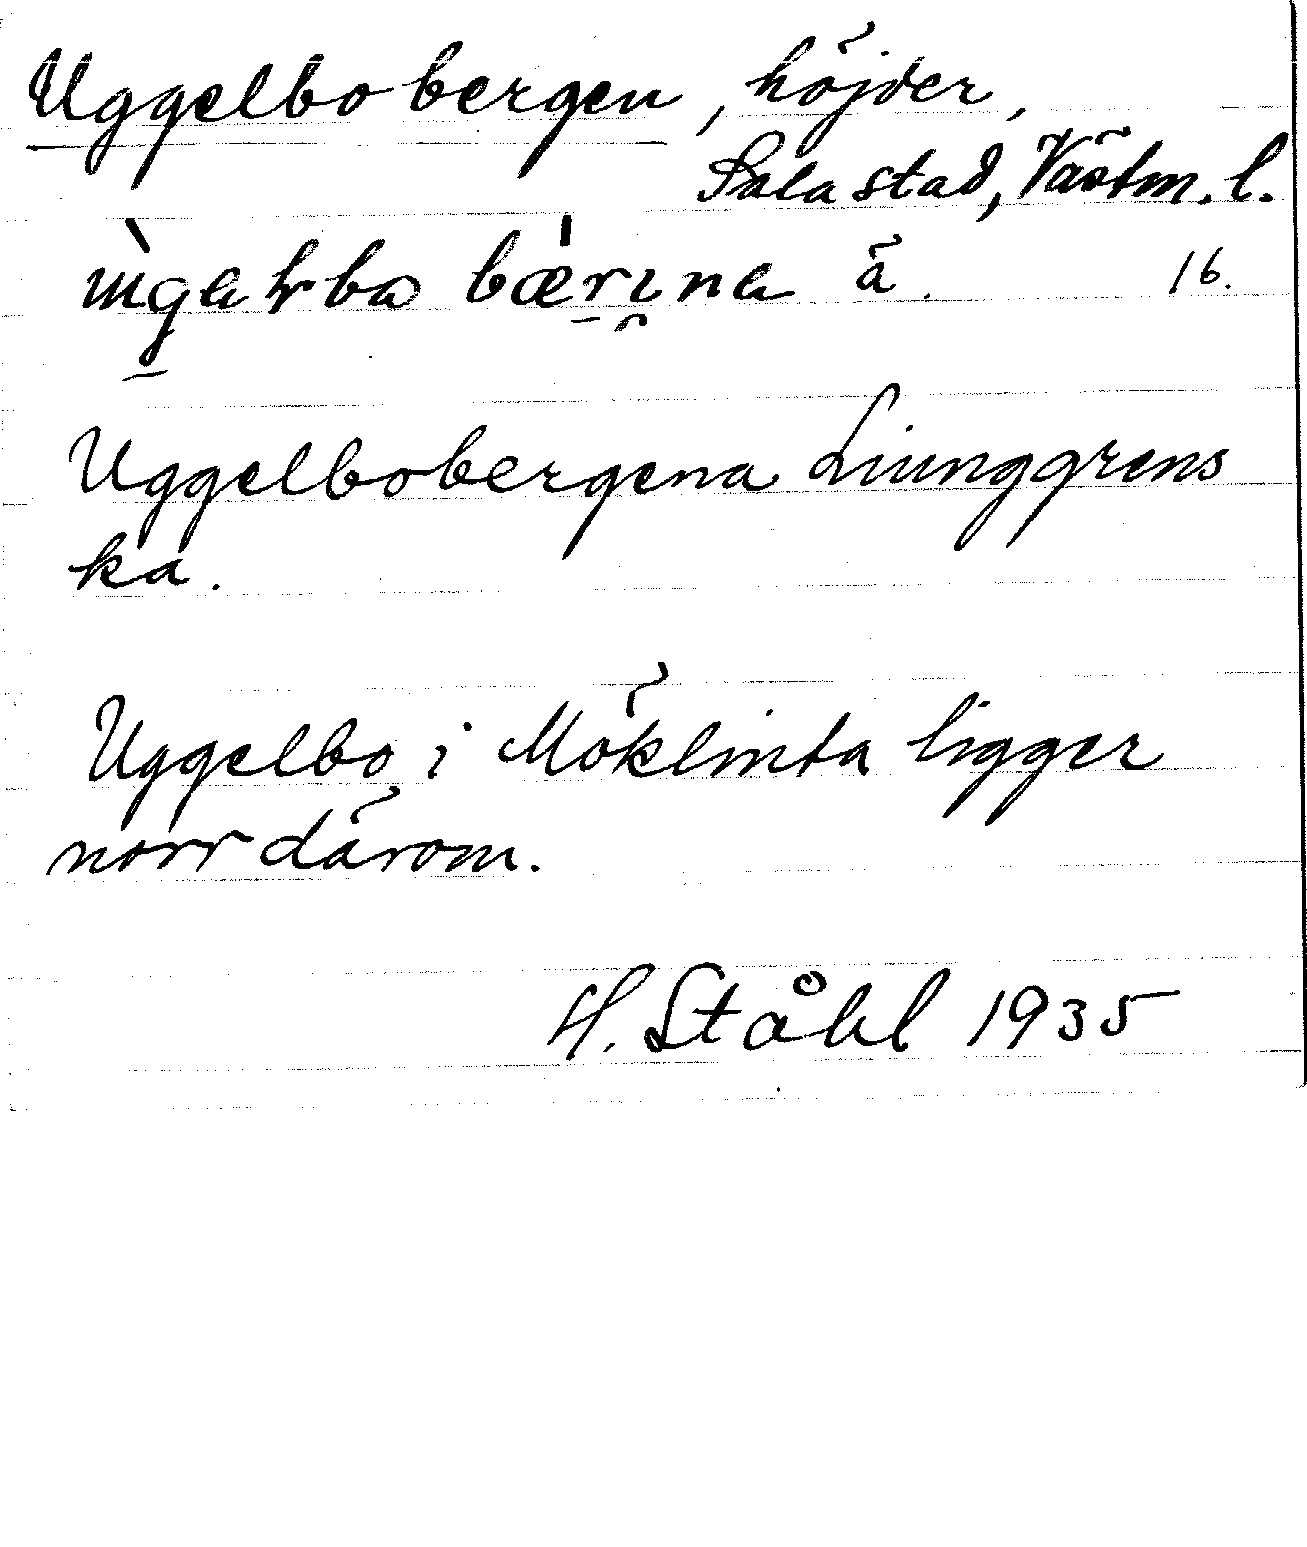 Uggelbobergen, höjder,
Sala stad, Västm. l.
ä. 16.
Uggelbobergena Liunggrens
ka.
Uggelbo i Möklinta ligger
norr därom.
H. Ståhl 1935